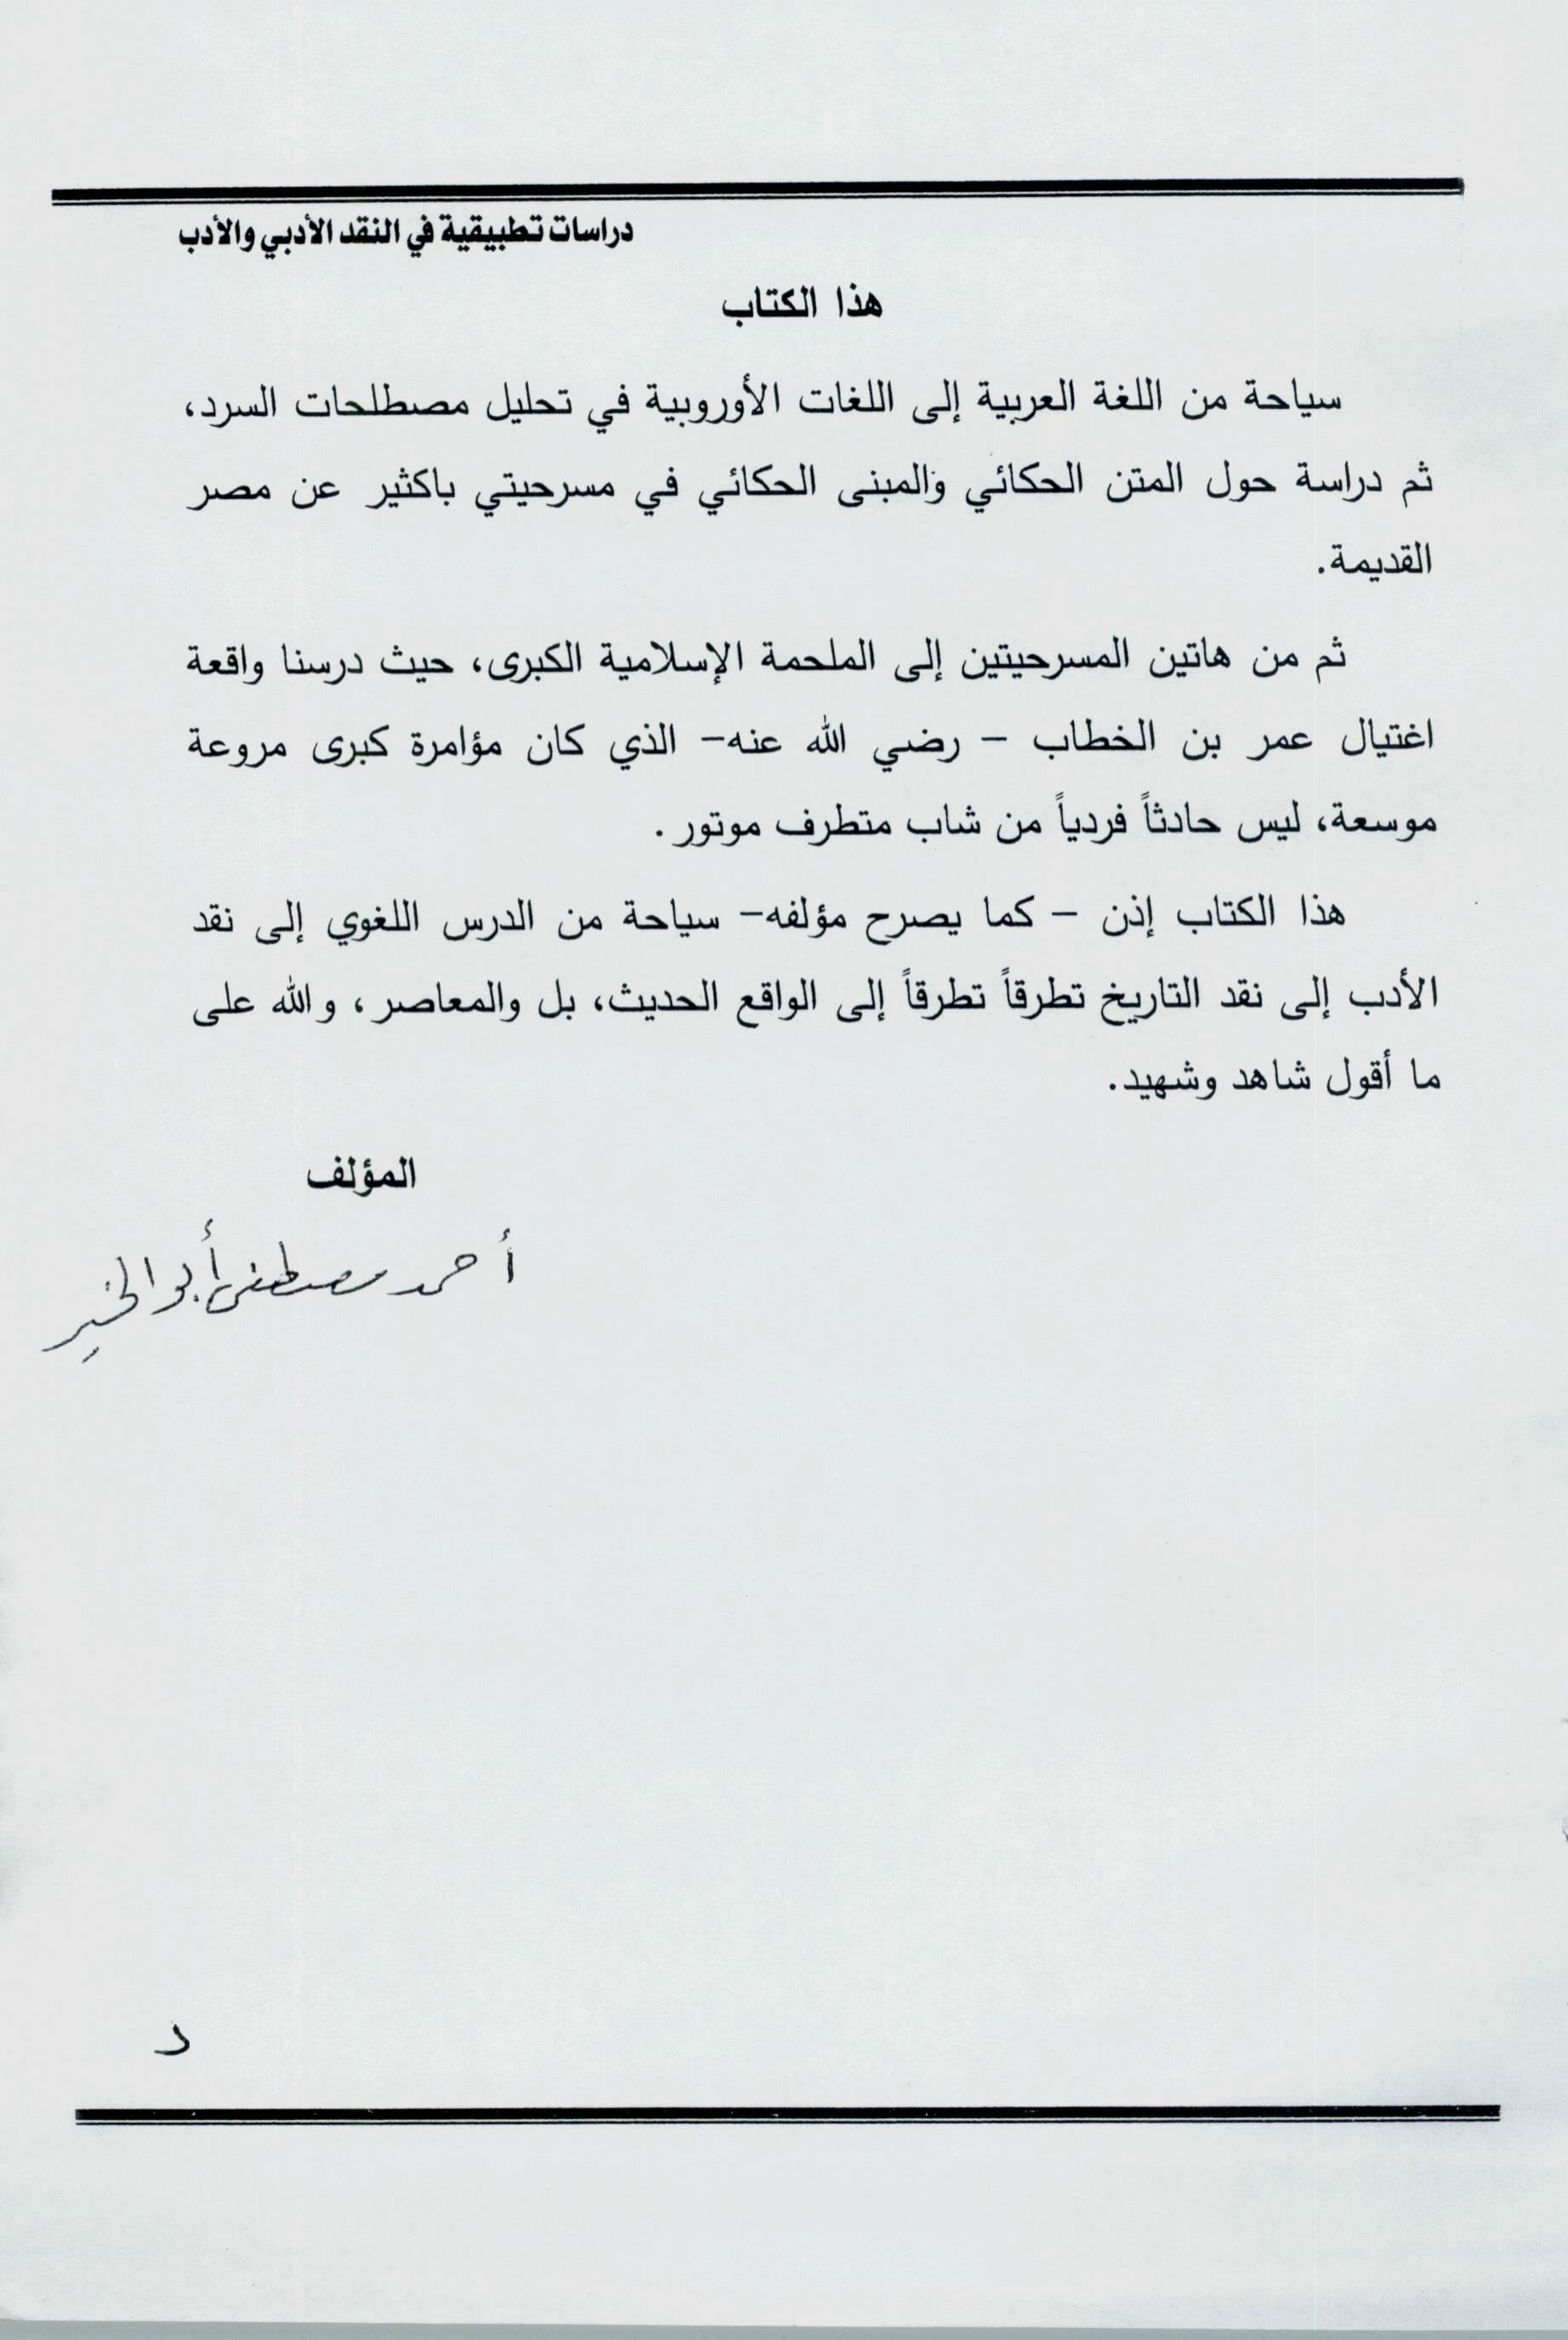 دراسات تطبيقية في النقد الأدبي والأدب
هذا الكتاب
سياحة من اللغة العربية إلى اللغات الأوروبية في تحليل مصطلحات السرد،
ثم دراسة حول المتن الحكائي والمبنى الحكائي في مسرحيتي باكثير عن مصر
القديمة.
ثم من هاتين المسرحيتين إلى الملحمة الإسلامية الكبرى، حيث درسنا واقعة
اغتيال عمر بن الخطاب – رضي الله عنه– الذي كان مؤامرة كبرى مروعة
موسعة، ليس حادثاً فردياً من شاب متطرف موتور .
هذا الكتاب إذن – كما يصرح مؤلفه– سياحة من الدرس اللغوي إلى نقد
الأدب إلى نقد التاريخ تطرقاً تطرقاً إلى الواقع الحديث، بل والمعاصر ، والله على
ما أقول شاهد وشهيد.
المؤلف
أحمد مصطفى أبو الخير
د